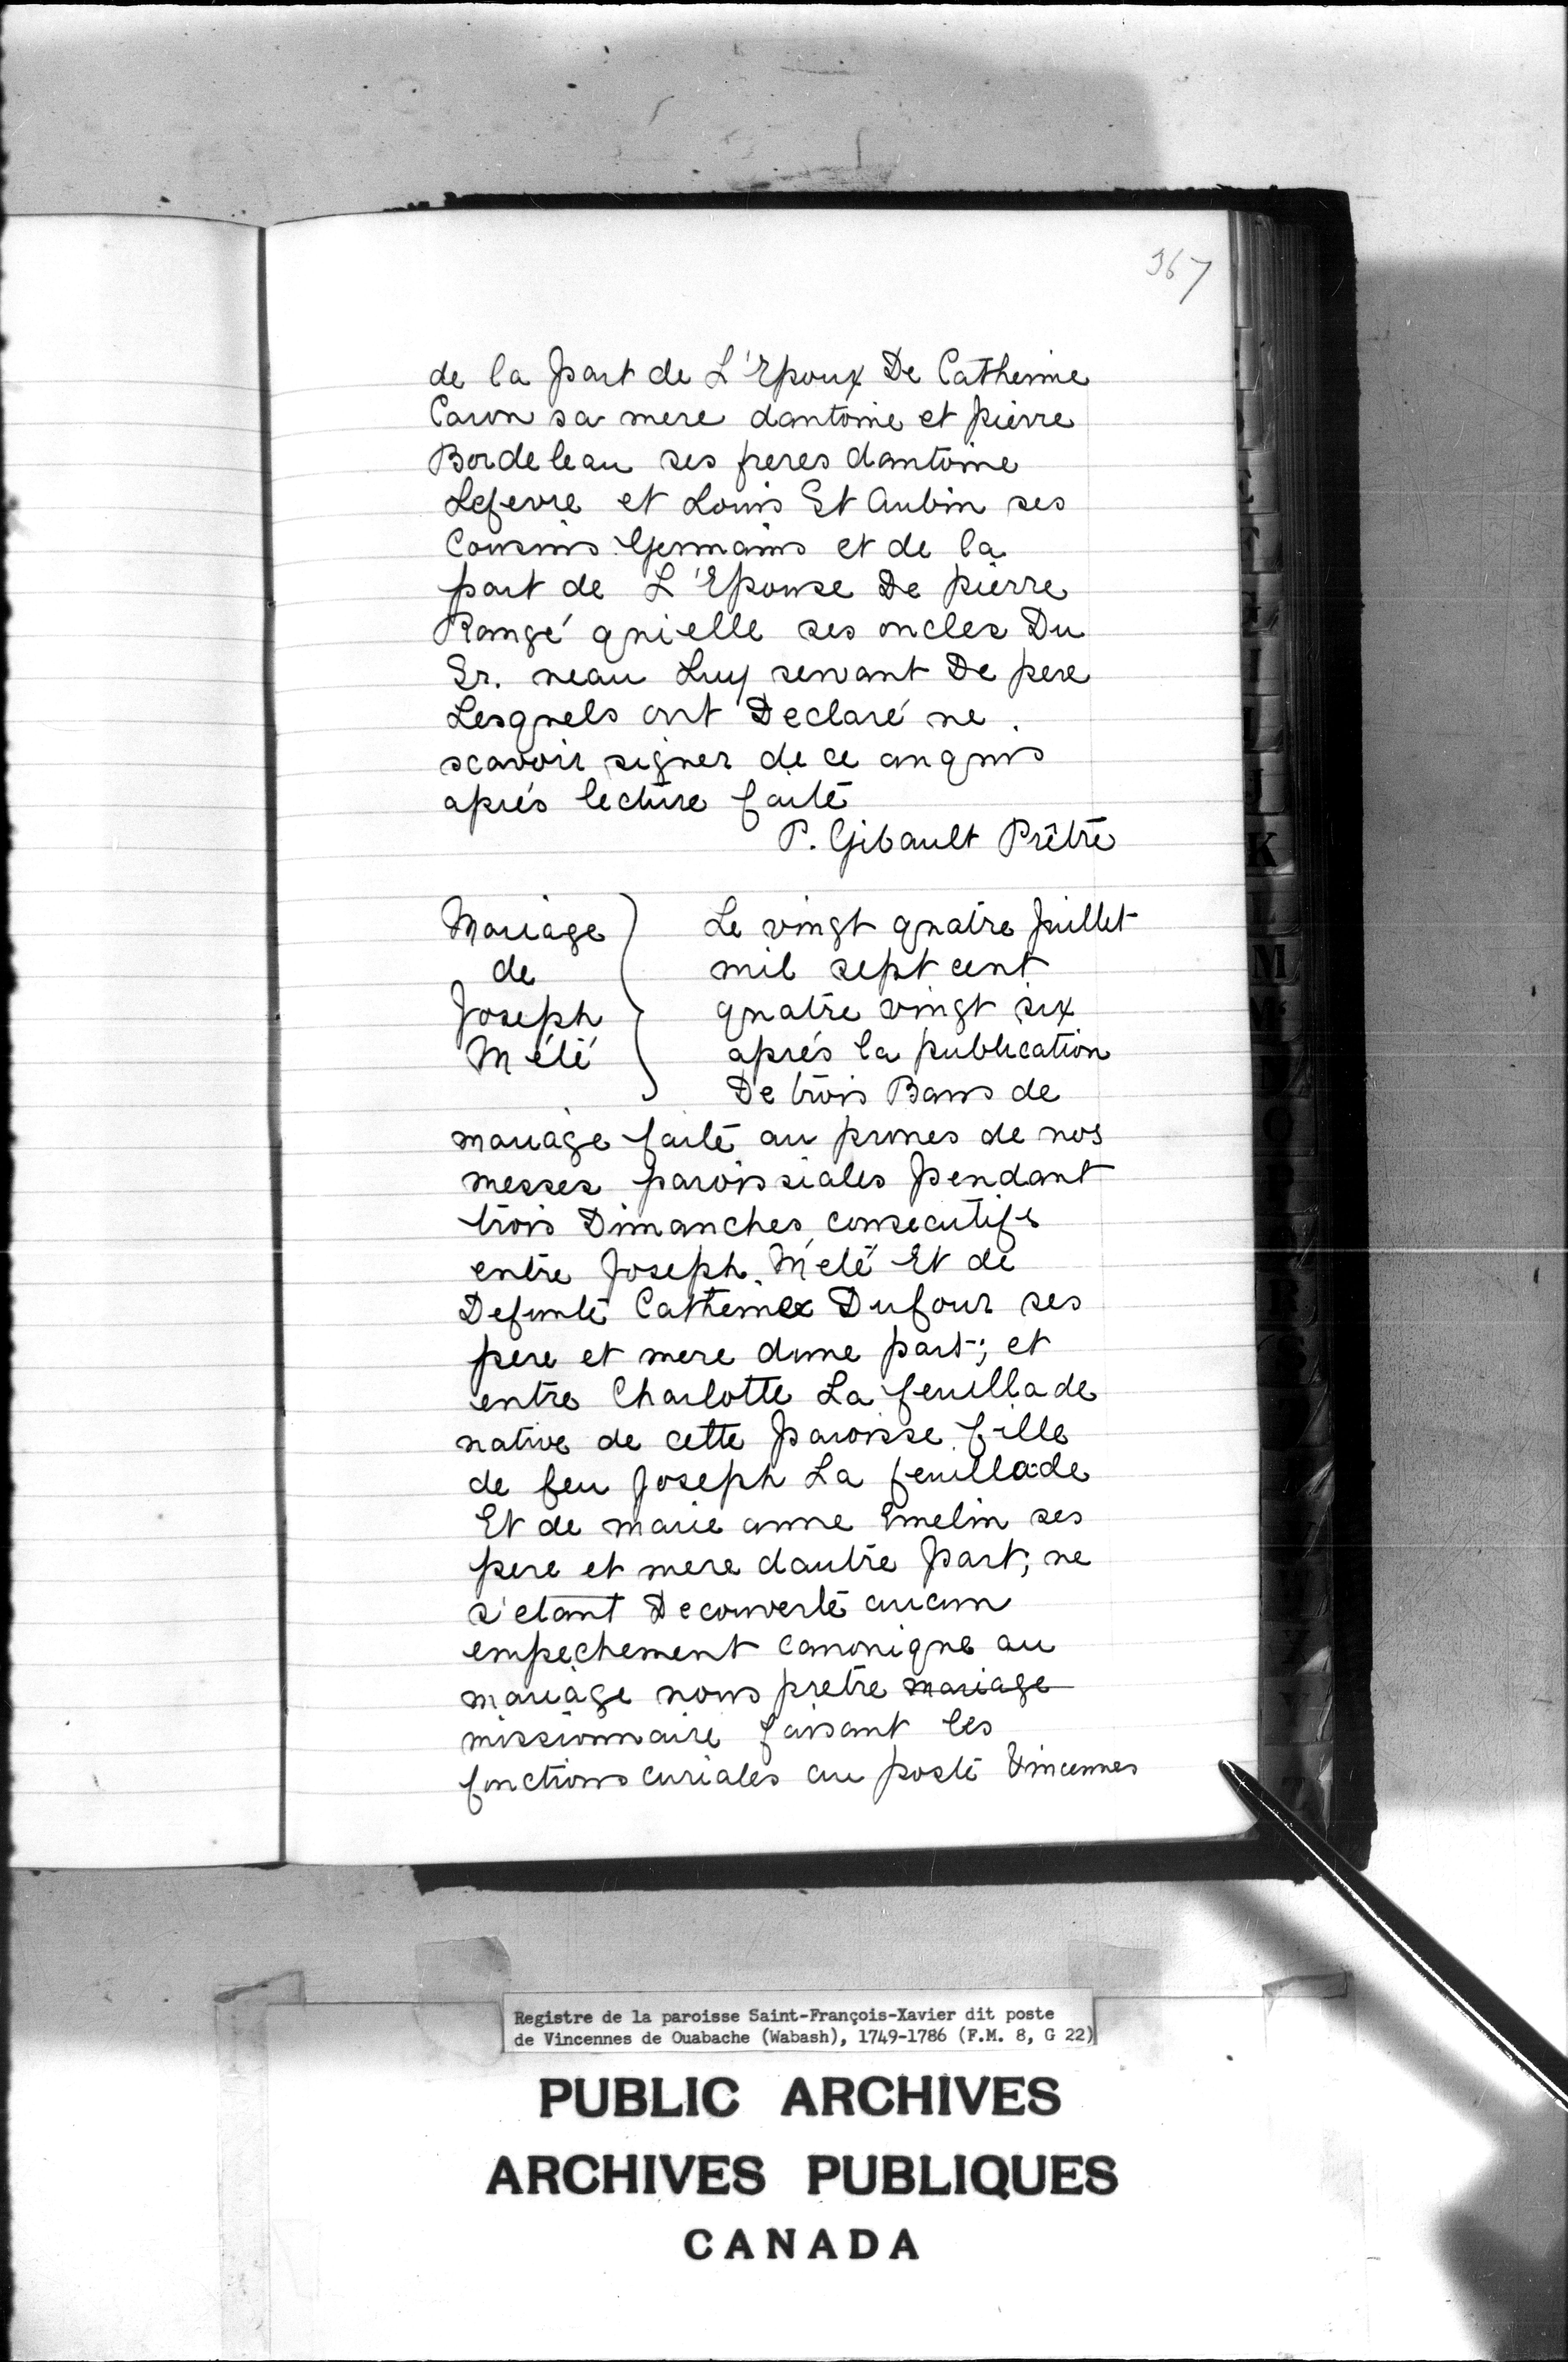 367
de la part de L'Epoux De Catherine
Caron sa mere dantoine et pierre
Bordeleau ses freres dantoine
Lefevre et Louis St Aubin ses
Cousins Germains et de la
part de L'Epouse De pierre
Rangé qnielle ses oncles Du
Sr. neau Luy servant De pere
Lesquels ont Declaré ne
scavoir signer de ce anquis
aprés lecture faite
P. Gibault Prêtre
Mariage de Joseph Mété
Le vingt quatre Juillet
mil sept cent
quatre vingt six
aprés la publication
De trois Bans de
mariage faite au prones de nos
messes paroissiales pendant
trois Dimanches consecutifs
entre Joseph Meté Et de
Defunte Catherine Dufour ses
pere et mere dune part; et
entre Charlotte La feuillade
native de cette paroisse fille
de feu Joseph La feuillade
Et de marie anne Emelin ses
pere et mere dautre part; ne
s'etant Decouverte aucun
empechement canonique au
mariage nous pretre mariage
missionnaire faisant les
fonctions curiales au poste Vincennes
K
L
M
Registre de la paroisse Saint-François-Xavier dit poste
de Vincennes de Ouabache (Wabash), 1749-1786 (F.M. 8, G 22)
PUBLIC ARCHIVES
ARCHIVES PUBLIQUES
CANADA